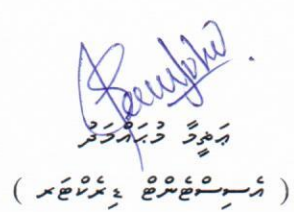 ޢަޠީމާ މުޙައްމަދު
( އެސިސްޓެންޓް ޑިރެކްޓަރ )